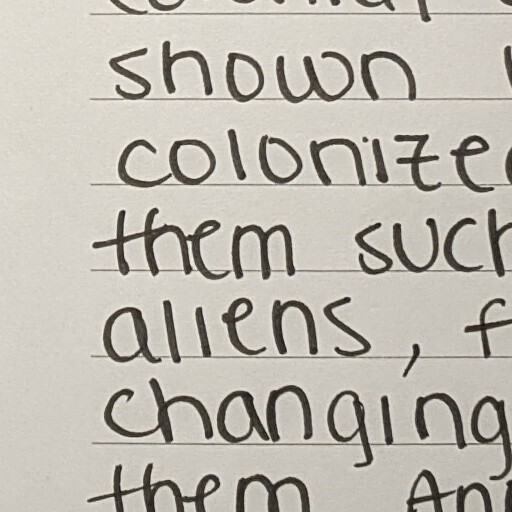 shown
colonize
them such
aliens, f
changing
them An